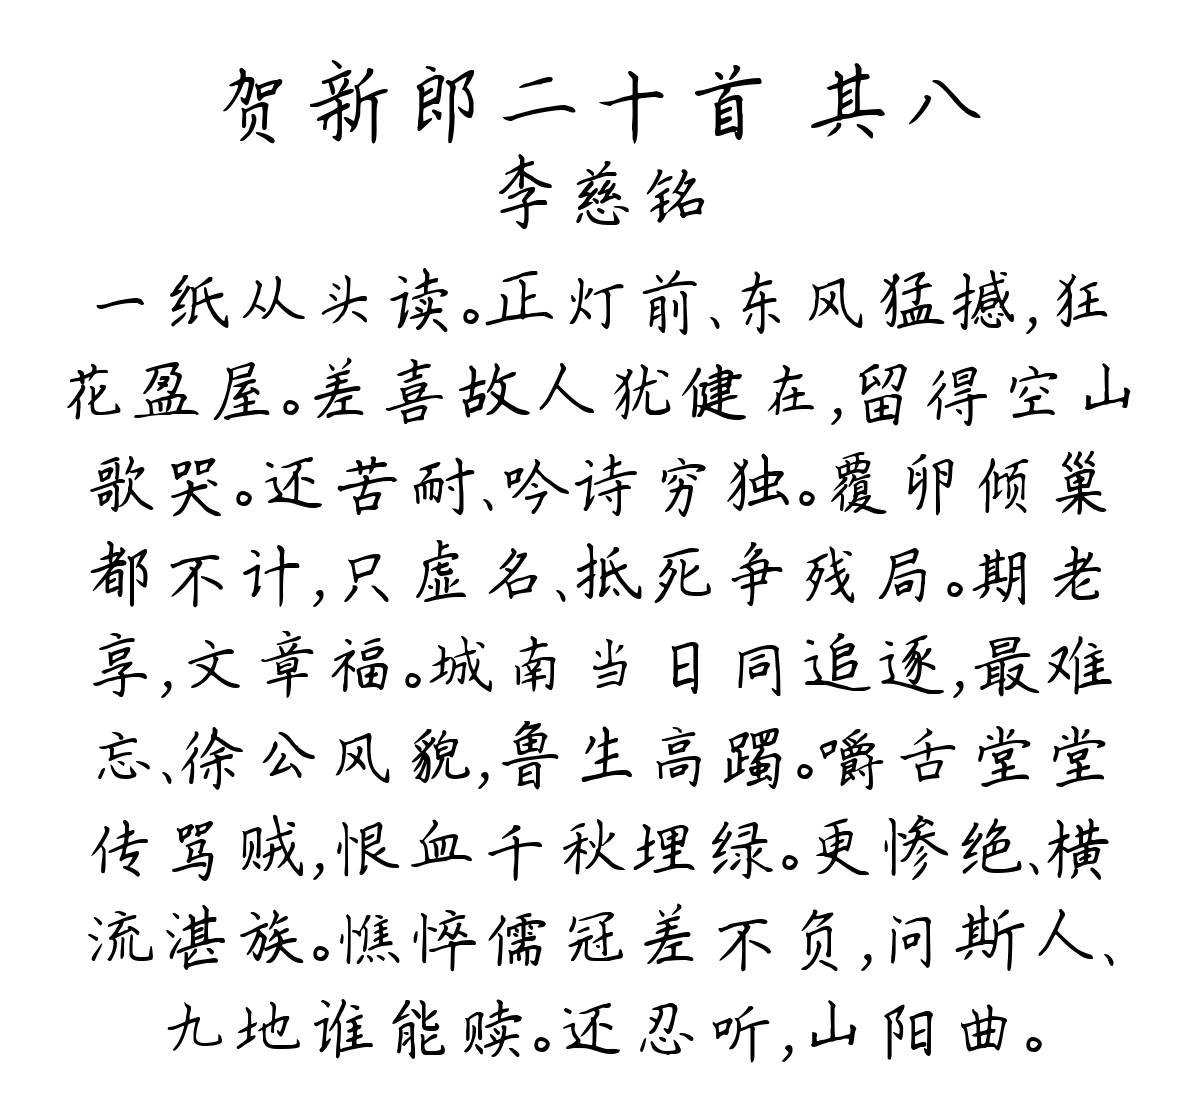 贺新郎二十首 其八
李慈铭
一纸从头读。正灯前、东风猛撼,狂
花盈屋。差喜故人犹健在,留得空山
歌哭。还苦耐、吟诗穷独。覆卵倾巢
都不计,只虚名、抵死争残局。期老
享,文章福。城南当日同追逐,最难
忘、徐公风貌,鲁生高躅。嚼舌堂堂
传骂贼,恨血千秋埋绿。更惨绝、横
流湛族。憔悴儒冠差不负,问斯人、
九地谁能赎。还忍听,山阳曲。